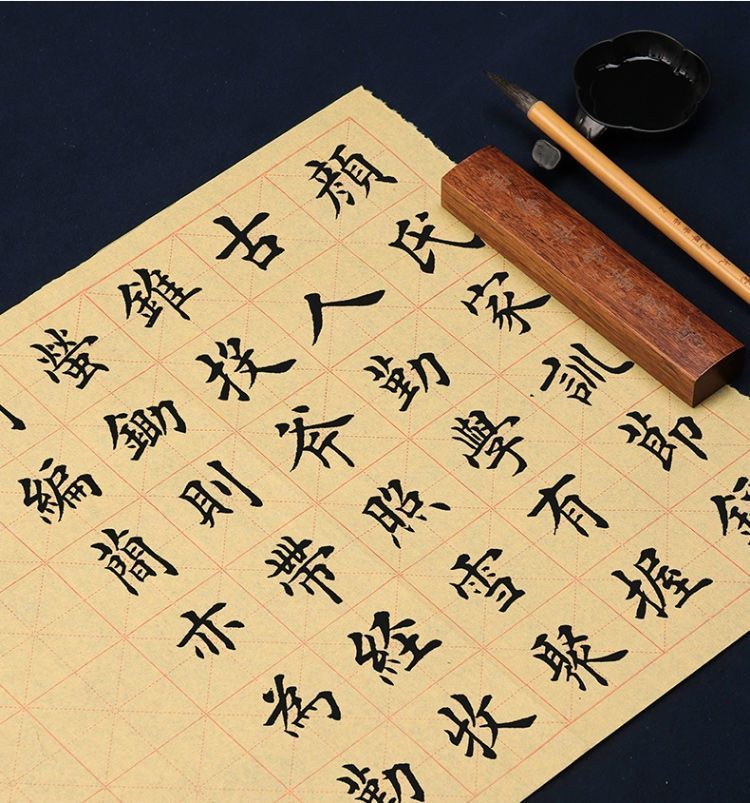 顏氏家訓節
古人勤學有握
錐投斧照雪聚
螢鋤則帶經牧
編簡亦為勤